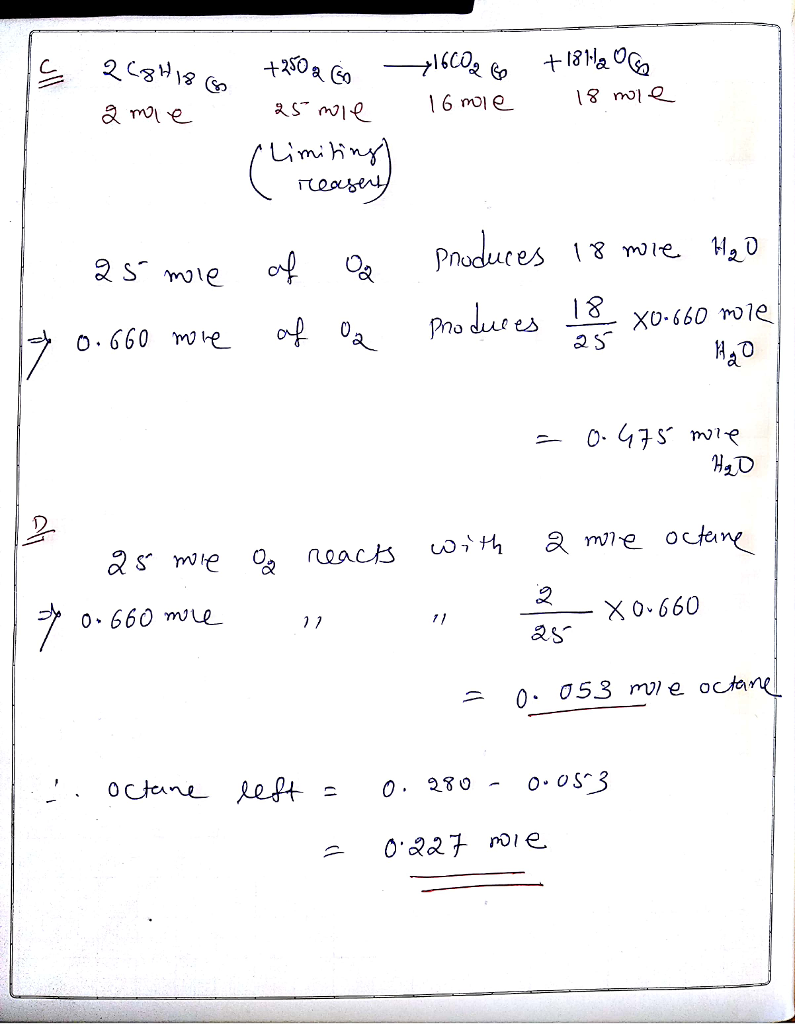 C 2C8H18(g) + 25O2(g) → 16CO2(g) + 18H2O(g)
2 mole 25 mole 16 mole 18 mole
(Limiting
reagent)
25 mole of O2 produces 18 mole H2O
⇒ 0.660 mole of O2 produces 18/25 X0.660 mole
H2O
= 0.475 mole
H2O
D
25 mole O2 reacts with 2 mole octane
⇒ 0.660 mole " " 2/25 X0.660
= 0.053 mole octane
∴ octane left = 0.280 - 0.053
= 0.227 mole